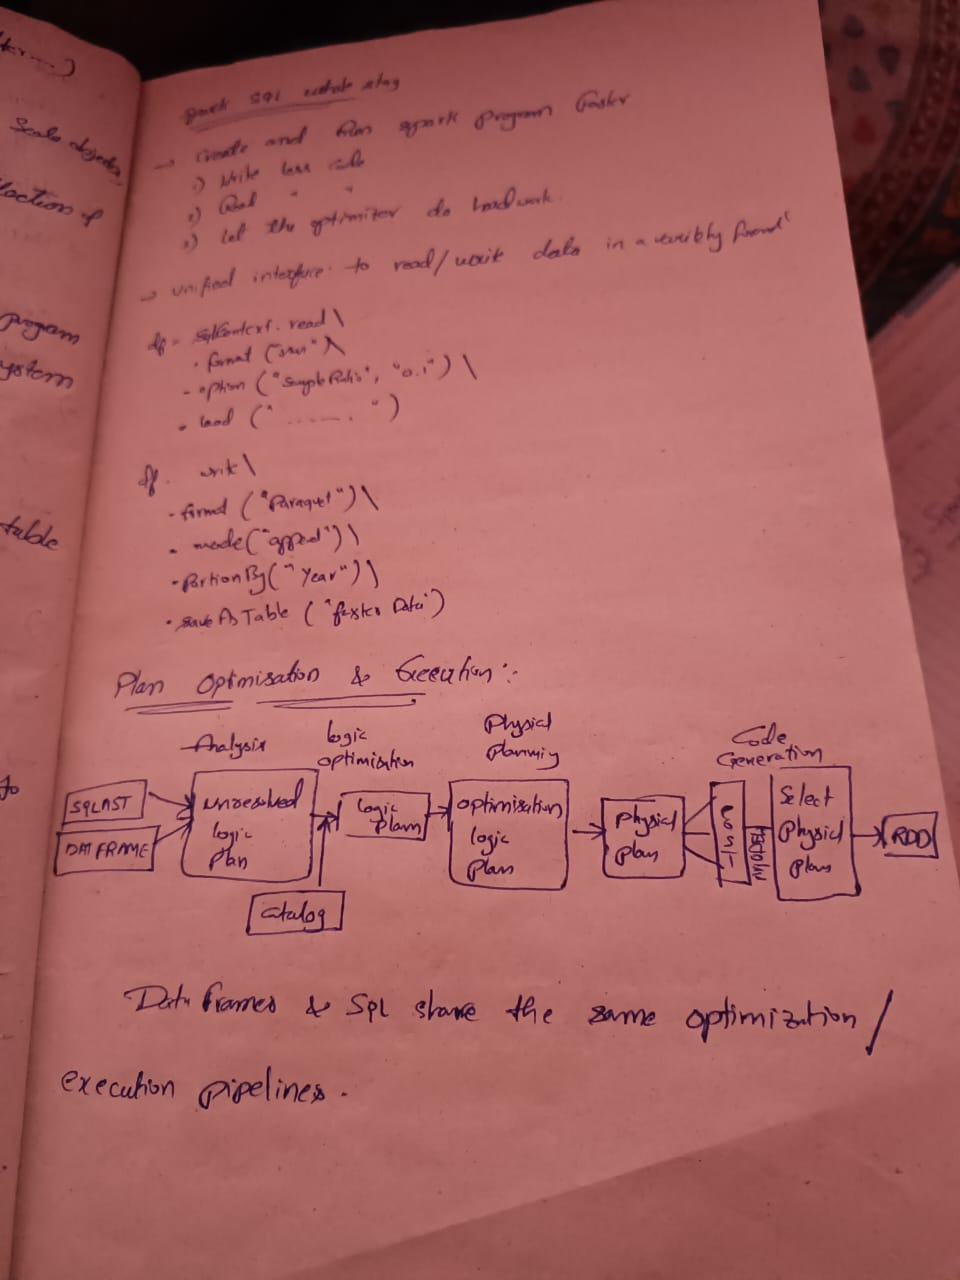 ter...)
Scala objects,
llection of
program
system
table
to
SQL
→ Create and Run spark program faster
1) Write less code
2) Read " "
3) Let the optimizer do hardwork.
→ unified interface to read/write data in a
df = sqlContext. read \
. format ("") \
- option ("Sample Ratio", "0.1") \
. load ("....... ")
df. write \
- format ("Paraquet") \
. mode ("append") \
- PartionBy (" Year") \
. save As Table ( "faster Data")
Plan Optimisation & Execution :-
Analysis
logic optimisation
Physical Planning
Code Generation
SQL AST
DATFRAME
unresolved logic plan
Catalog
logic plann
optimisation logic plan
Physical plan
Cost
Model
Select Physical plans
RDD
Data frames & Sql share the same optimization /
execution pipelines.